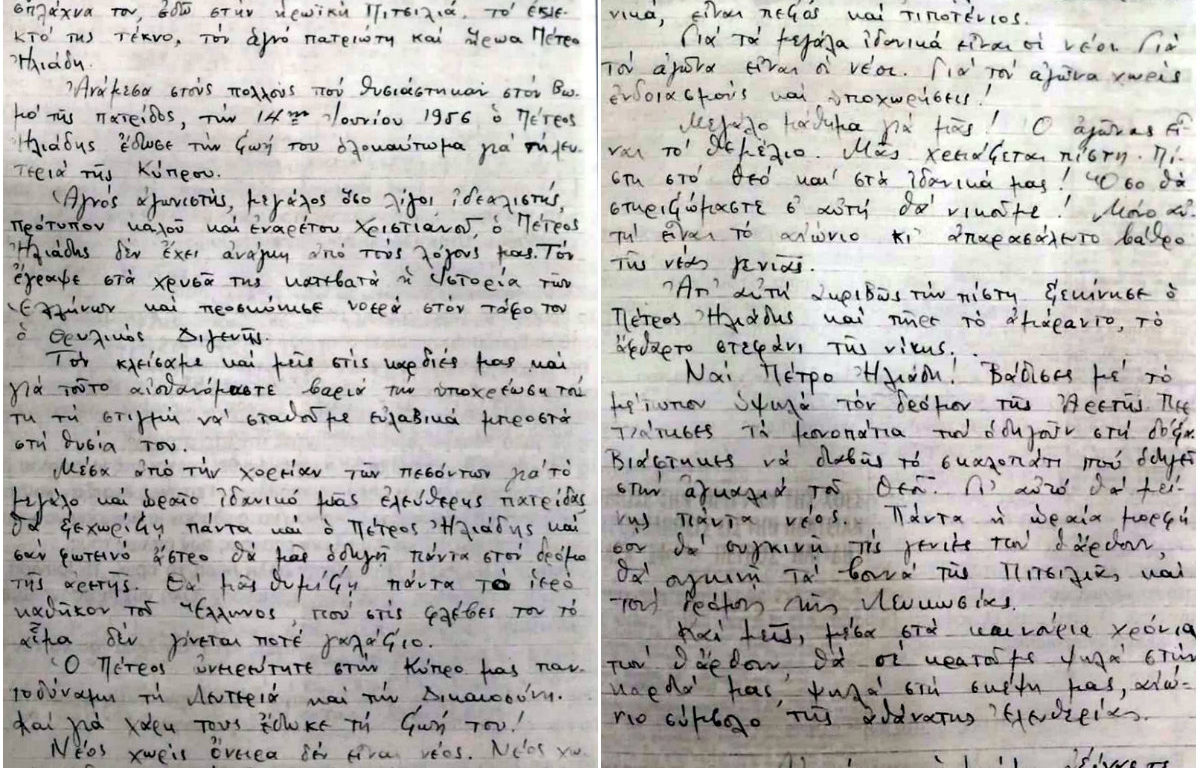 σπλάχνα του, ἐδῶ στήν ἡρωϊκή Πιτσιλιά, τό ἐκλε-
κτό της τέκνο, τόν ἁγνό πατριώτη καί ἥρωα Πέτρο
Ἠλιάδη.
Ἀνάμεσα στούς πολλούς πού θυσιάστηκαν στόν βω-
μό τῆς πατρίδος, τήν 14ην Ἰουνίου 1956 ὁ Πέτρος
Ἠλιάδης ἔδωσε τήν ζωή του ὁλοκαύτωμα γιά τή λευ-
τεριά τῆς Κύπρου.
Ἁγνός ἀγωνιστής, μεγάλος ὅσο λίγοι ἰδεαλιστής,
πρότυπον καλοῦ καί ἐναρέτου Χριστιανοῦ, ὁ Πέτρος
Ἠλιάδης δέν ἔχει ἀνάγκη ἀπό τούς λόγους μας. Τόν
ἔγραψε στά χρυσᾶ της κατεβατά ἡ Ἱστορία τῶν
Ἑλλήνων καί προσκύνησε νοερά στόν τάφο του
ὁ θρυλικός Διγενῆς.
Τόν κλείσαμε καί μεῖς στίς καρδιές μας καί
γιά τοῦτο αἰσθανόμαστε βαριά τήν ὑποχρέωση τού-
τη τή στιγμή νά σταθοῦμε εὐλαβικά μπροστά
στή θυσία του.
Μέσα ἀπό τήν χορείαν τῶν πεσόντων γιά τό
μεγάλο καί ὡραῖο ἰδανικό μιᾶς ἐλεύθερης πατρίδας
θά ξεχωρίζη πάντα καί ὁ Πέτρος Ἠλιάδης καί
σάν φωτεινό ἄστρο θά μᾶς ὁδηγῆ πάντα στόν δρόμο
τῆς ἀρετῆς. Θά μᾶς θυμίζη πάντα τό ἱερό
καθῆκον τοῦ Ἕλληνος, πού στίς φλέβες του τό
αἷμα δέν γίνεται ποτέ γαλάζιο.
Ὁ Πέτρος ὠνειρεύτητε στήν Κύπρο μας παν-
τοδύναμη τή Λευτεριά καί τήν Δικαιοσύνη.
Καί γιά χάρη τους ἔδωκε τή ζωή του!
Νέος χωρίς ὄνειρα δέν εἶναι νέος. Νέος χω-
νικά, εἶναι πεζός καί τιποτένιος.
Γιά τά μεγάλα ἰδανικά εἶναι οἱ νέοι. Γιά
τόν ἀγῶνα εἶναι οἱ νέοι. Γιά τόν ἀγῶνα χωρίς
ἐνδοιασμούς καί ὑποχωρήσεις!
Μεγάλο μάθημα γιά μᾶς! Ὁ ἀγῶνας εἶ-
ναι τό θεμέλιο. Μᾶς χρειάζεται πίστη. Πί-
στη στό Θεό καί στά ἰδανικά μας! Ὅσο θά
στηριζώμαστε σ' αὐτή θά νικοῦμε! Μόνο αὐ-
τή εἶναι τό αἰώνιο κι' ἀπαρασάλευτο βάθρο
τῆς νέας γενιᾶς.
Ἀπ' αὐτή ἀκριβῶς τήν πίστη ξεκίνησε ὁ
Πέτρος Ἠλιάδης καί πῆρε τό ἀμάραντο, τό
ἄφθαρτο στεφάνι τῆς νίκης.
Ναί Πέτρο Ἠλιάδη! Βάδισες μέ τό
μέτωπον ὑψηλά τόν δρόμον τῆς Ἀρετῆς. Περ-
πάτησες τά μονοπάτια πού ὁδηγοῦν στή δόξα.
Βιάστηκες νά διαβῆς τό σκαλοπάτι πού ὁδηγεῖ
στήν ἀγκαλιά τοῦ Θεοῦ. Γι' αὐτό θά μεί-
νης πάντα νέος. Πάντα ἡ ὡραία μορφή
σου θά συγκινῆ τίς γενιές πού θἄρθουν,
θά συγκινῆ τά βουνά τῆς Πιτσιλιᾶς καί
τούς δρόμους τῆς Λευκωσίας.
Καί μεῖς, μέσα στά καινούρια χρόνια
πού θἄρθουν θά σέ κρατοῦμε ψηλά στήν
καρδιά μας, ψηλά στή σκέψη μας, αἰώ-
νιο σύμβολο τῆς ἀθάνατης Ἐλευθερίας.